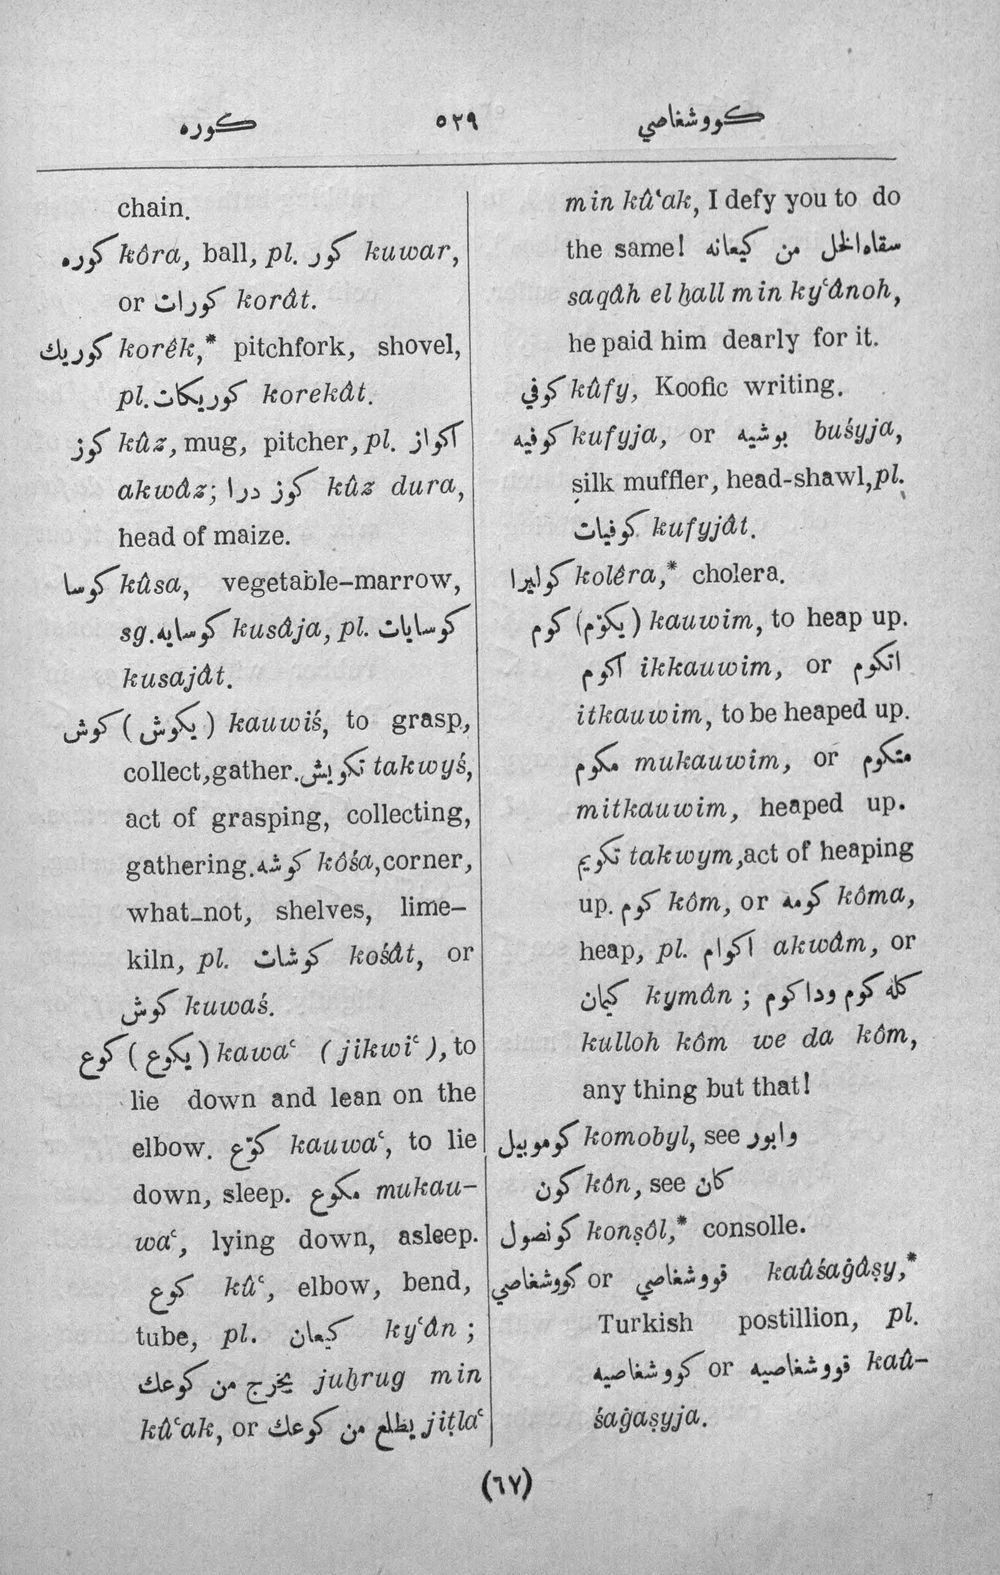 كوره ٥٢٩ كووشغاصي
chain.
كوره kôra, ball, pl. كور kuwar,
or كورات korât.
كوريك korêk,* pitchfork, shovel,
pl. كوريكات korekât.
كوز kûz, mug, pitcher, pl. اكواز
akwâz; كوز درا kûz dura,
head of maize.
كوسا kûsa, vegetable-marrow,
sg. كوسايه kusâja, pl. كوسايات
kusajât.
كوش (يكوش) kauwiś, to grasp,
collect, gather. تكويش takwyś,
act of grasping, collecting,
gathering. كوشه kôśa, corner,
what-not, shelves, lime-
kiln, pl. كوشات kośât, or
كوش kuwaś.
كوع (يكوع) kawaʿ (jikwiʿ), to
lie down and lean on the
elbow. كوّع kauwaʿ, to lie
down, sleep. مكوع mukau-
waʿ, lying down, asleep.
كوع kûʿ, elbow, bend,
tube, pl. كيعان kyʿân;
يخرج من كوعك juḫrug min
kûʿak, or يطلع من كوعك jiṭlaʿ
min kûʿak, I defy you to do
the same! سقاه الخل من كيعانه
saqâh el ḫall min kyʿânoh,
he paid him dearly for it.
كوفي kûfy, Koofic writing.
كوفيه kufyja, or بوشيه buśyja,
silk muffler, head-shawl, pl.
كوفيات kufyjât.
كوليرا kolêra,* cholera.
كوم (يكوّم) kauwim, to heap up.
اكوم ikkauwim, or اتكوم
itkauwim, to be heaped up.
مكوم mukauwim, or متكوم
mitkauwim, heaped up.
تكويم takwym, act of heaping
up. كوم kôm, or كومه kôma,
heap, pl. اكوام akwâm, or
كيمان kymân; كله كوم ودا كوم
kulloh kôm we da kôm,
any thing but that!
كوموبيل komobyl, see وابور
كون kôn, see كان
كونصول konṣôl,* consolle.
كووشغاصي or قووشغاصي kaûśaġâṣy,*
Turkish postillion, pl.
كووشغاصيه or قووشغاصيه kaû-
śaġaṣyja.
(٦٧)